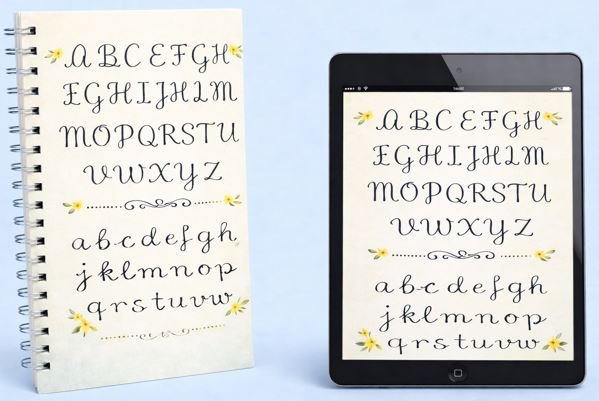 ABCEFGH
EGHIJHLM
MOPQRSTU
VWXYZ
abcdefgh
jklmnop
qrstuvw
ABCEFGH
EGHIJHLM
MOPQRSTU
VWXYZ
abcdefgh
jklmnop
qrstuvw